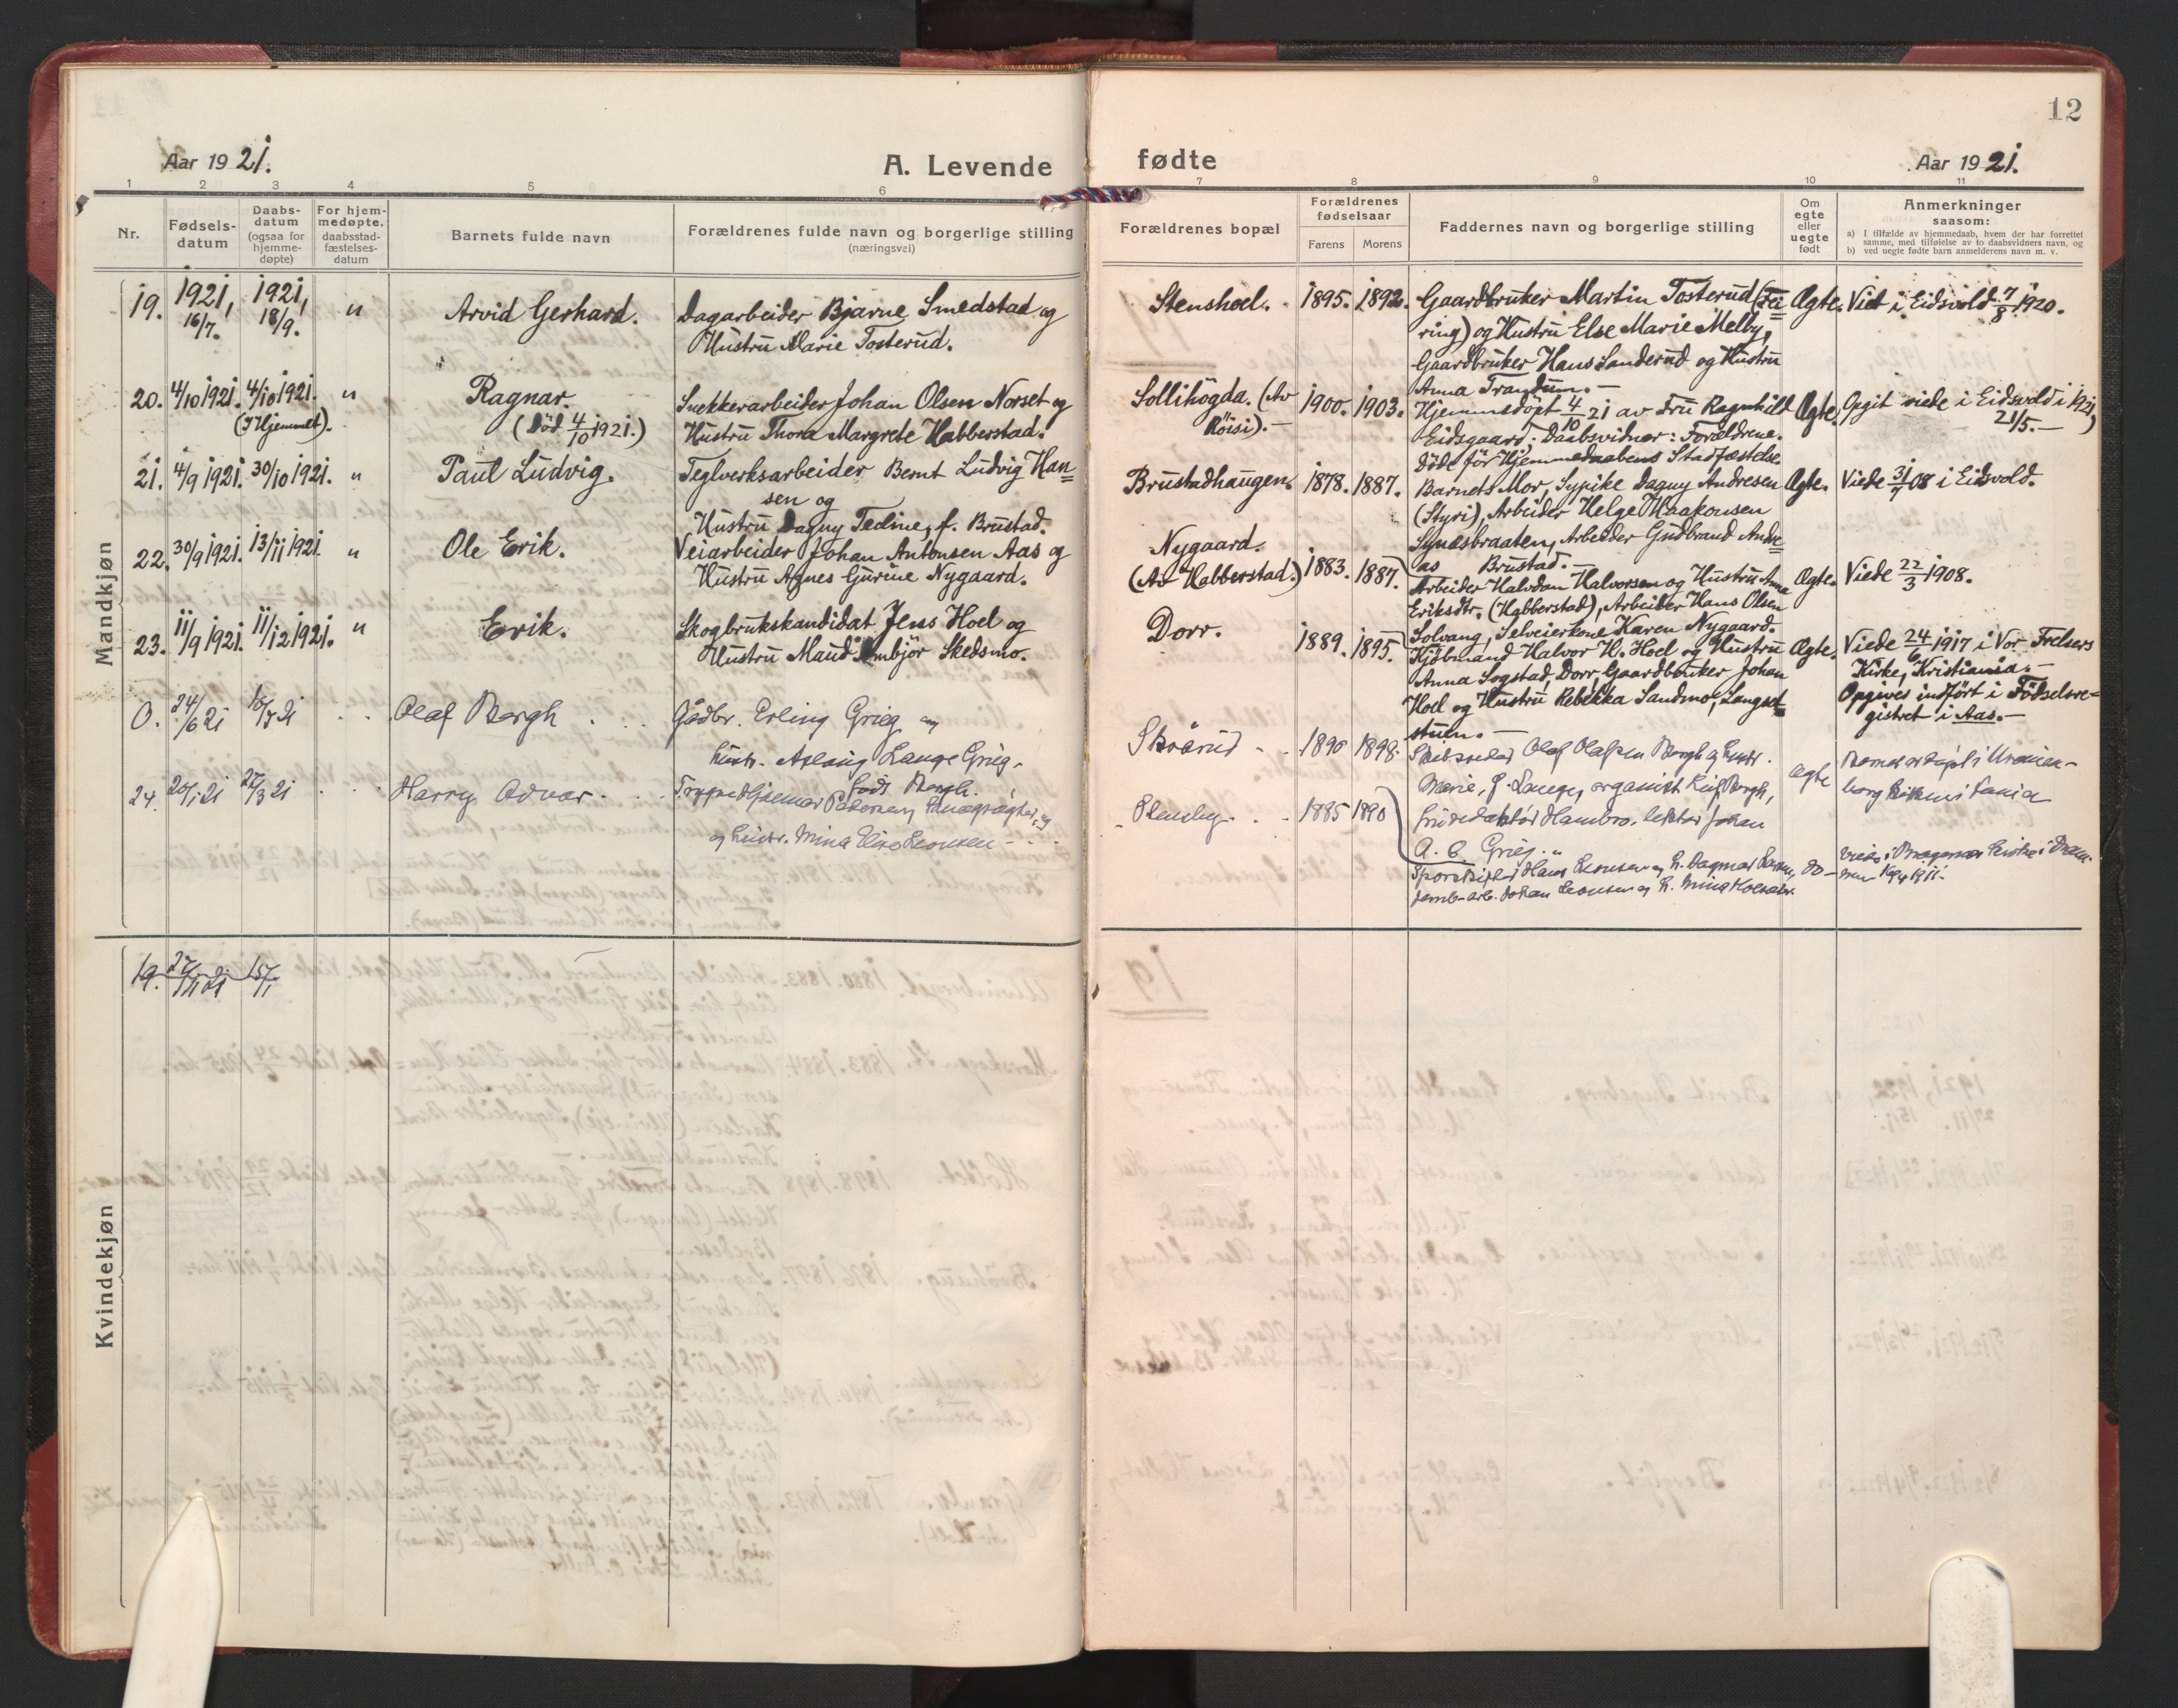 12
Aar 1921.
A. Levende
fødte
Aar 1921.
1 2 3 4 5 6 7 8 9 10 11
Nr.
Fødsels-
datum
Daabs-
datum
(ogsaa for
hjemme-
døpte)
For hjem-
medøpte,
daabsstad-
fæstelses-
datum
Barnets fulde navn
Forældrenes fulde navn og borgerlige stilling
(næringsvei)
Forældrenes bopæl
Forældrenes
fødselsaar
Farens
Morens
Faddernes navn og borgerlige stilling
Om
egte
eller
uegte
født
Anmerkninger
saasom:
a) I tilfælde av hjemmedaab, hvem der har forrettet
samme, med tilføielse av to daabsvidners navn, og
b) ved uegte fødte barn anmelderens navn m. v.
Mandkjøn
19. 1921, 16/7. 1921, 18/9. "
Arvid Gerhard.
Dagarbeider Bjarne Smedstad og
Hustru Marie Tosterud.
Stenshoel. 1895. 1892.
Gaardbruker Martin Tosterud (Fei=
ring) og Hustru Else Marie Melby,
Gaardbruker Hans Sanderud og Hustru
Anna Trandum. —
Ægte. Viet i Eidsvold 7/8 1920.
20. 4/10 1921. 4/10 1921. (I Hjemmet). "
Ragnar.
(Död 4/10 1921.)
Snekkerarbeider Johan Olsen Norset og
Hustru Thora Margrete Habberstad.
Sollihögda. (Av
Röisi). — 1900. 1903.
Hjemmedöpt 4/10 21 av Fru Ragnhild
Eidsgaard; Daabsvidner: Forældrene.
Döde för Hjemmedaabens Stadfæstelse.
Ægte. Opgit viede i Eidsvold i 1921,
21/5. —
21. 4/9 1921. 30/10 1921. "
Paul Ludvig.
Teglverksarbeider Bernt Ludvig Han=
sen og
Hustru Dagny Tedine, f. Brustad.
Brustadhaugen. 1878. 1887.
Barnets Mor, Sypike Dagny Andresen
(Styri), Arbeider Helge Haakonsen
Synæsbraaten, Arbeider Gudbrand Andre=
as Brustad. —
Ægte. Viede 31/7 08 i Eidsvold.
22. 30/9 1921. 13/11 1921. "
Ole Erik.
Veiarbeider Johan Antonsen Aas og
Hustru Agnes Gurine Nygaard.
Nygaard.
(Av Habberstad.) 1883. 1887.
Arbeider Halvdan Halvorsen og Hustru Anna
Eriksdtr. (Habberstad), Arbeider Hans Olsen
Solvang, Selveierkone Karen Nygaard.
Ægte. Viede 22/3 1908.
23. 11/9 1921. 11/12 1921. "
Erik.
Skogbrukskandidat Jens Hoel og
Hustru Maud Ambjör Skedsmo.
Dorr. 1889. 1895.
Kjöbmand Halvor H. Hoel og Hustru
Anna Sogstad, Dorr, Gaardbruker Johan
Hoel og Hustru Rebekka Sandmo, Langset=
stuen. —
Ægte. Viede 24/6 1917 i Vor Frelsers
Kirke, Kristiania. —
Opgives indfört i Födselsre=
gistret i Aas. —
0. 24/6 21
Olaf Borgh
Gådbr. Erling Grieg og
hustr. Aslaug Lange Grieg,
født Borgh.
Skåarud 1890 1898
Skibsreder Olaf Olafsen Borgh og hustr.
Marie, f. Lange, organist Leif Borgh,
fru redaktör Hambro, lektor Johan
A. B. Grieg.
ægte Barnet er döpt i Uranien-
borg kirke
24. 20/1 21 27/3 21
Harry Odvar
Hjalmar Pedersen
og hustr. Mina Elise Leonsen
Stensby 1885 1890
Hans Leonsen og h. Dagmar
Jernb-arb. Johan Leonsen og h. Mina
do
Viede i Bragernes kirke i Dram-
men 1911.
Kvindekjøn
19. 27/11 21 15/1